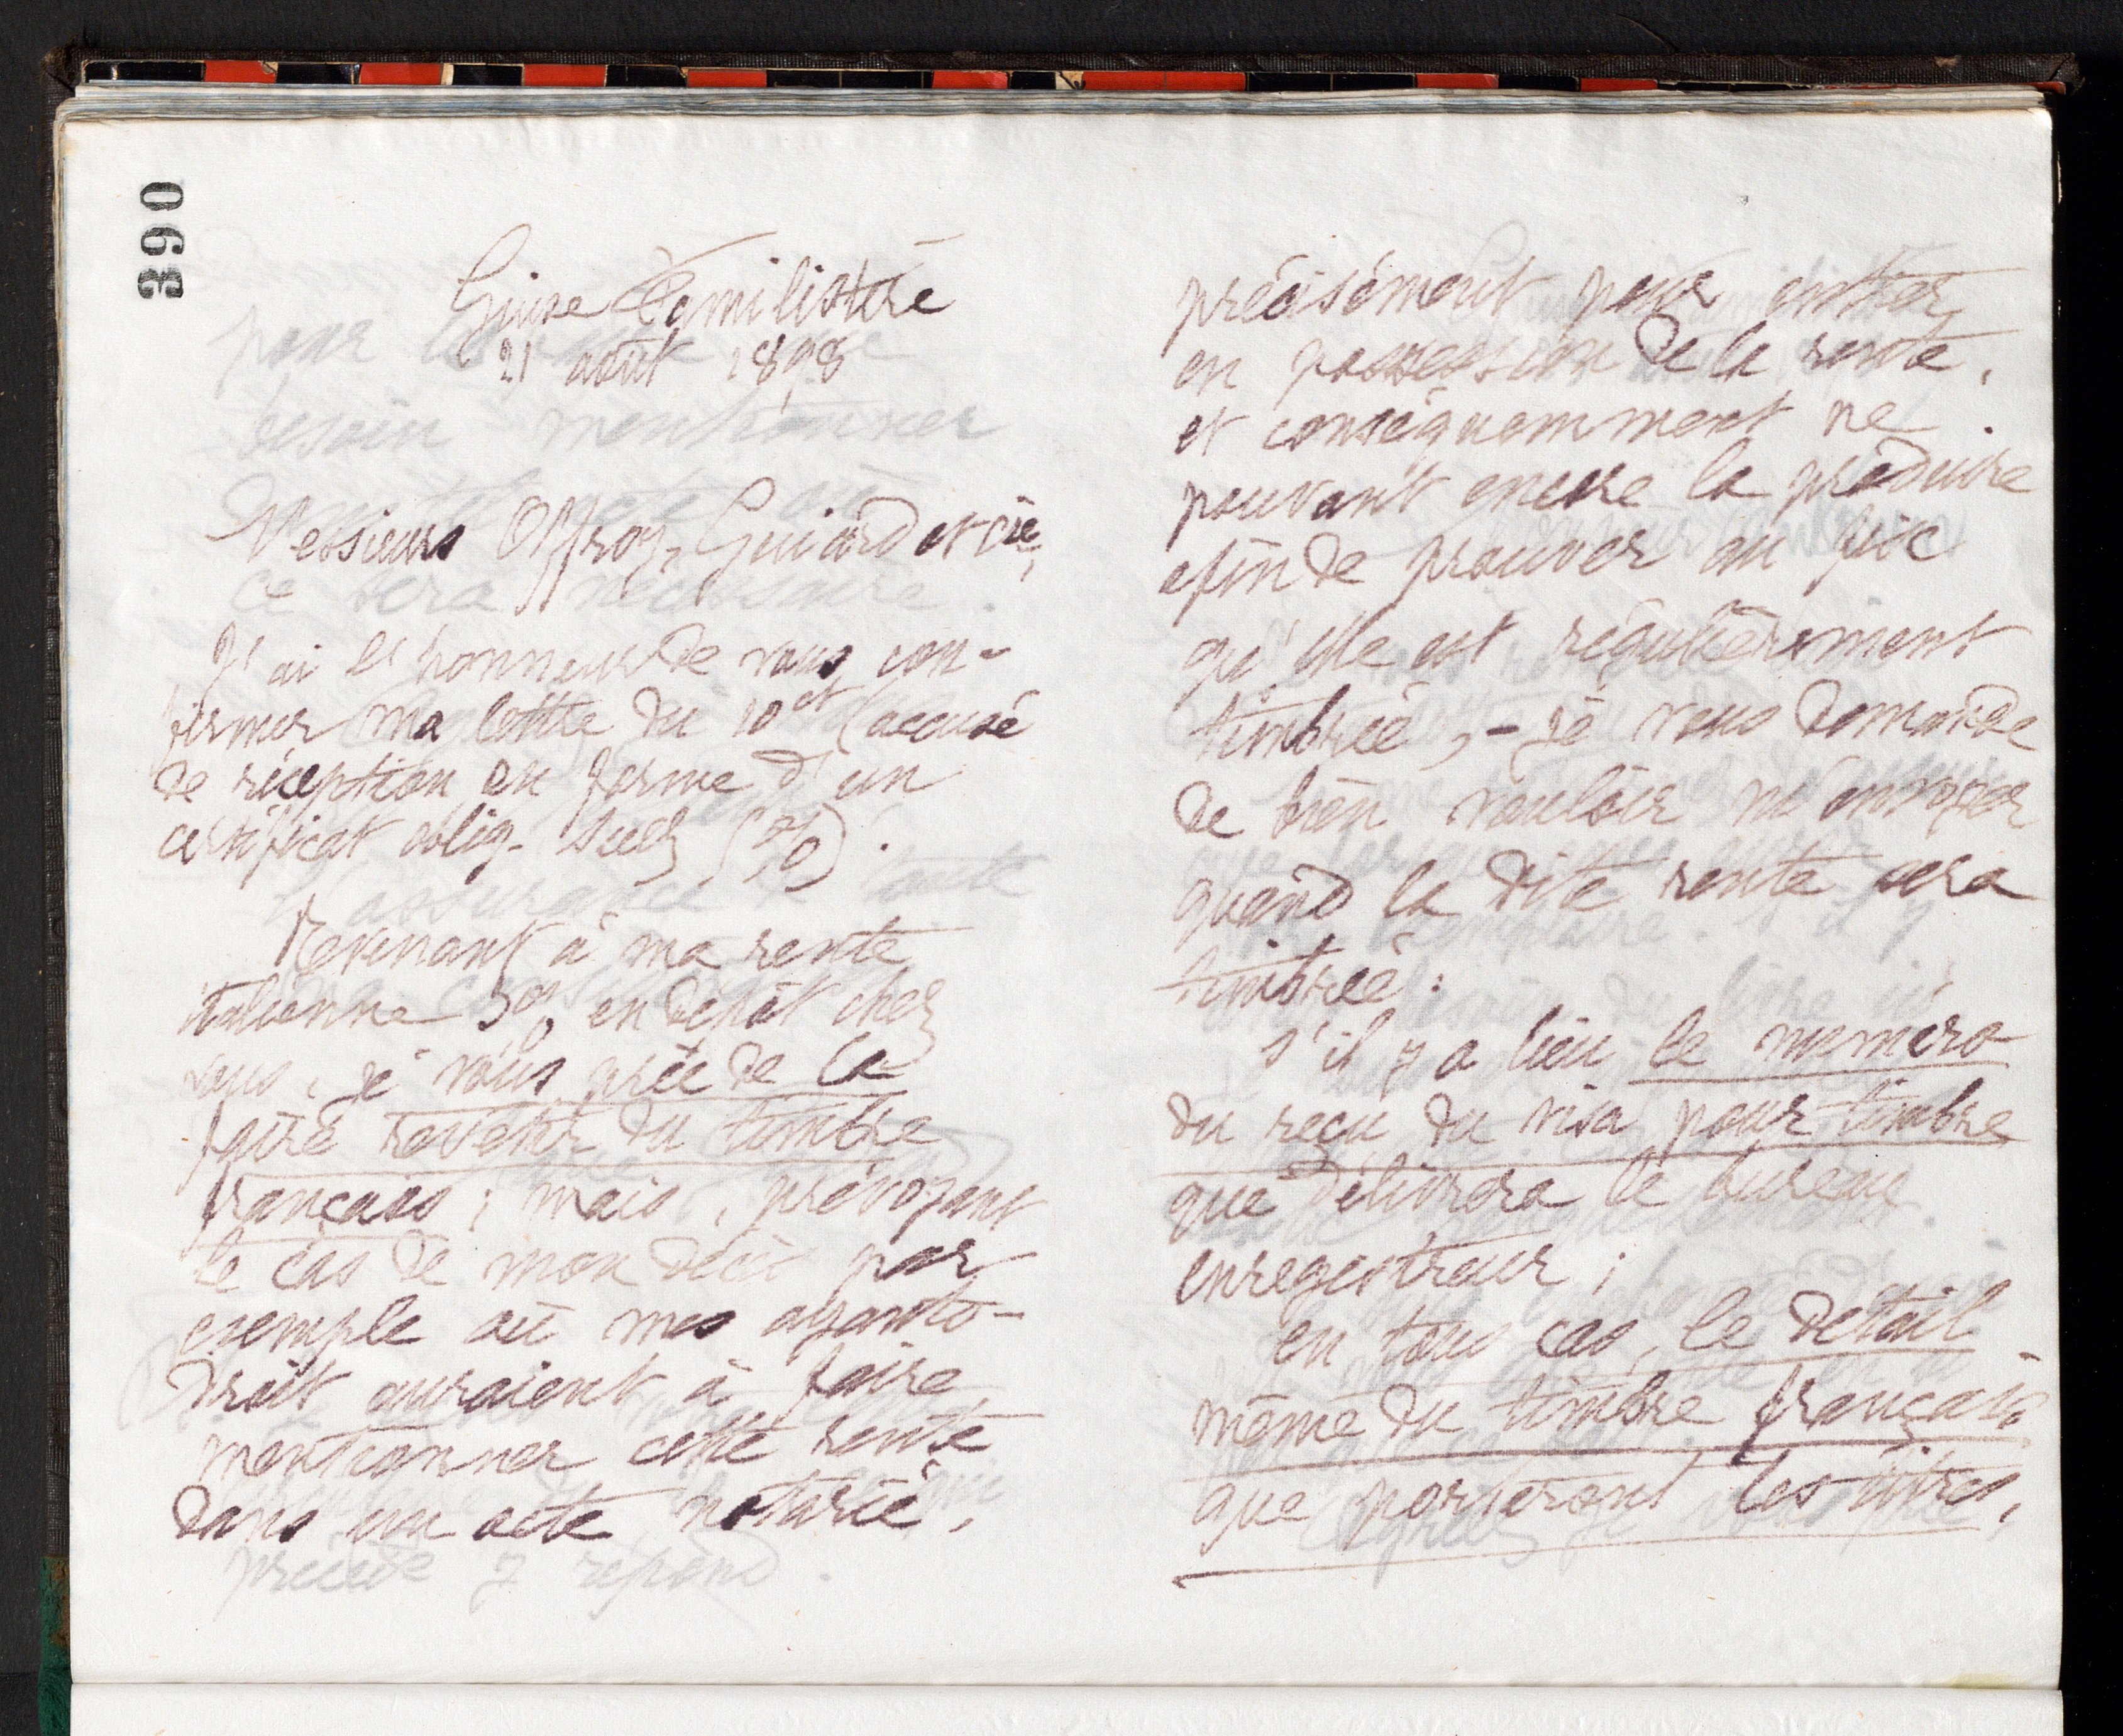 390
Guise Familistère
21 août 1898
Messieurs Offroy, Guiard et Cie,
J'ai l'honneur de vous con-
firmer ma lettre du 10 ct (accusé
de réception en forme d'un
certificat oblig. Suez 5%).
Revenant à ma rente
italienne 5% en dépôt chez
vous, je vous prie de la
faire revêtir du timbre
français ; mais, prévoyant
le cas de mon décès par
exemple où mes ayants-
droit auraient à faire
mentionner cette rente
dans un acte notarié,
précisément pour entrer
en possession de la rente,
et conséquemment ne
pouvant encore la produire
afin de prouver au fisc
qu'elle est régulièrement
timbrée, - je vous demande
de bien vouloir m'envoyer
quand la dite rente sera
timbrée :
s'il y a lieu le numéro
du reçu du visa pour timbre
que délivrera le bureau
enregistreur ;
en tous cas, le détail
même du timbre français
que porteront les titres,